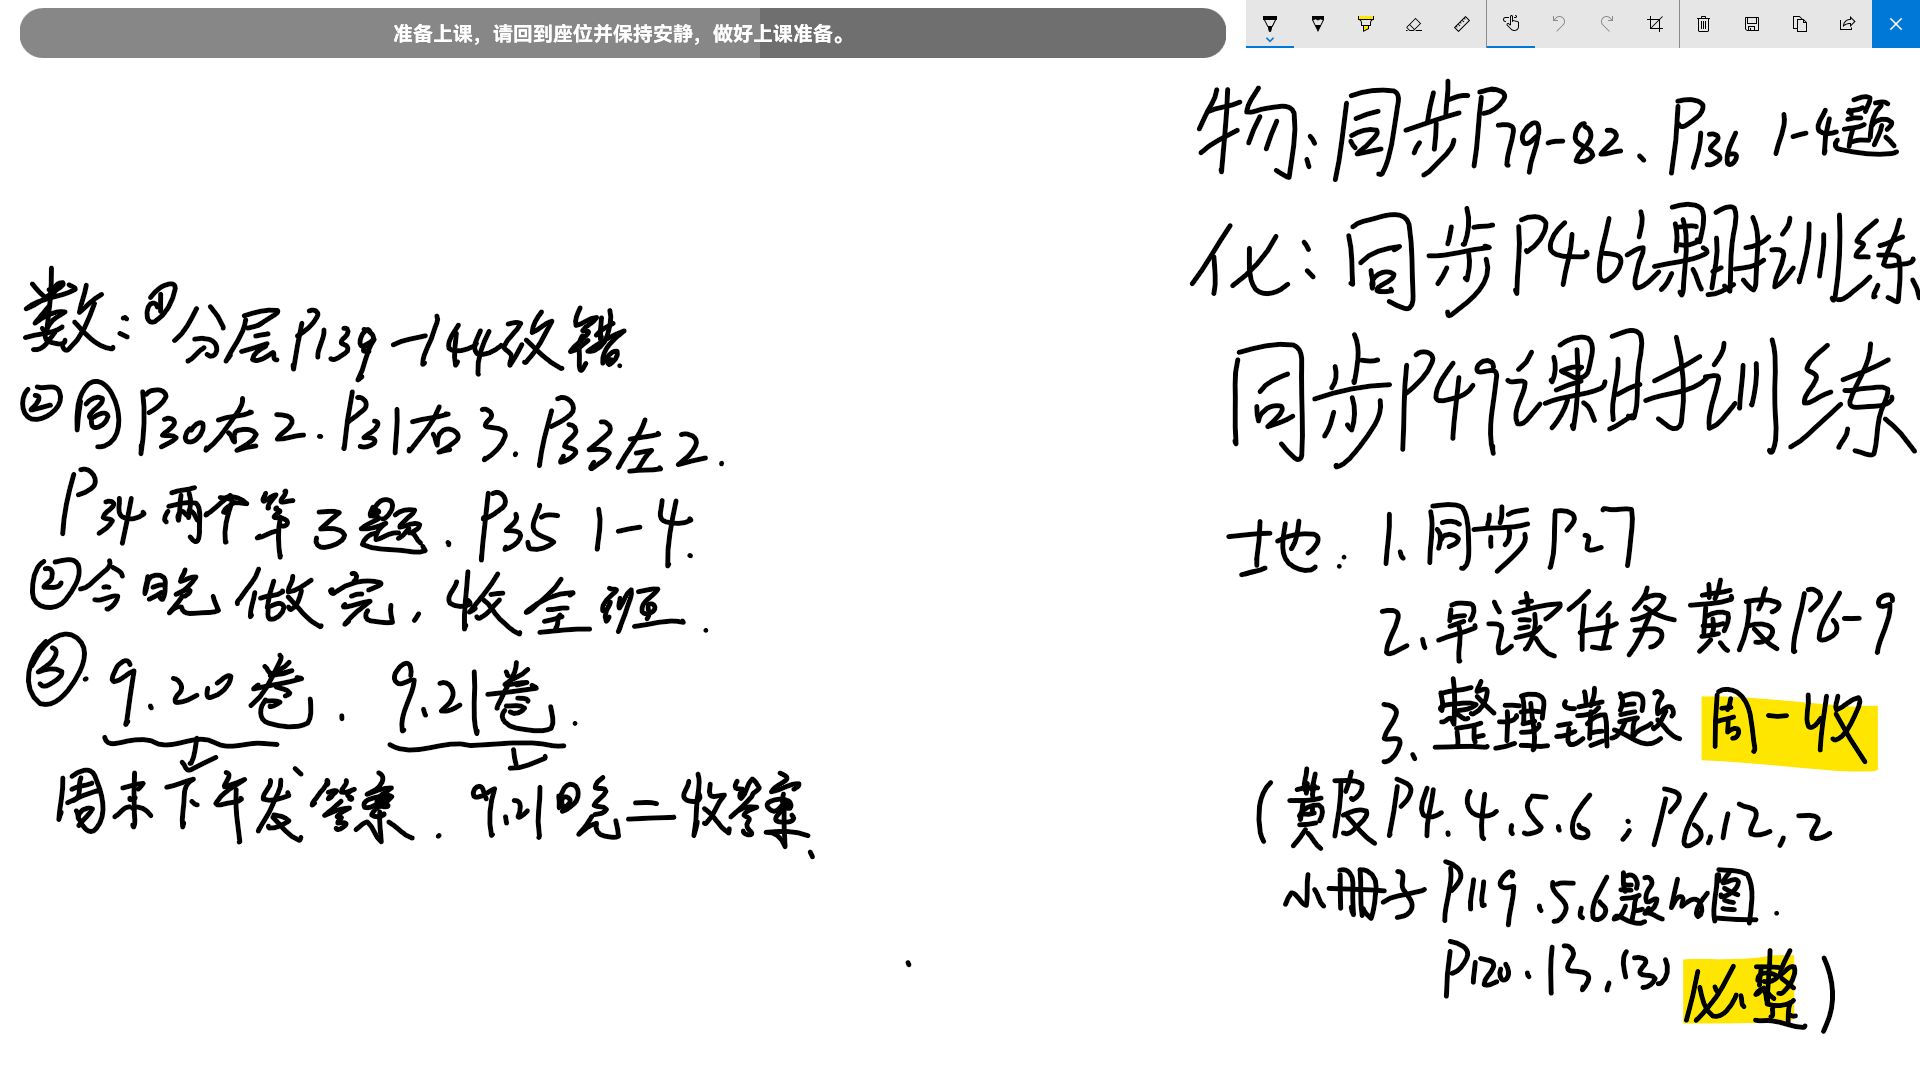 准备上课，请回到座位并保持安静，做好上课准备。
数：①分层P139-144改错.
②同P30右2.P31右3.P33左2.
P34两个第3题.P35 1-4.
②今日晚做完,收全班.
③.9.20卷.9.21卷.
周末下午发答案.9.21日晚二收答案.
物：同步P79-82、P136 1-4题
化：同步P46课时训练
同步P49课时训练
地：1.同步P27
2.早读任务黄皮P6-9
3.整理错题 周一收
(黄皮P4.4.5.6；P6.12,2
小册子P119.5.6题的图.
P120.13,(3) 必整)